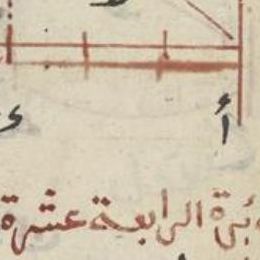 أ
ئرة الرابعة عشرة